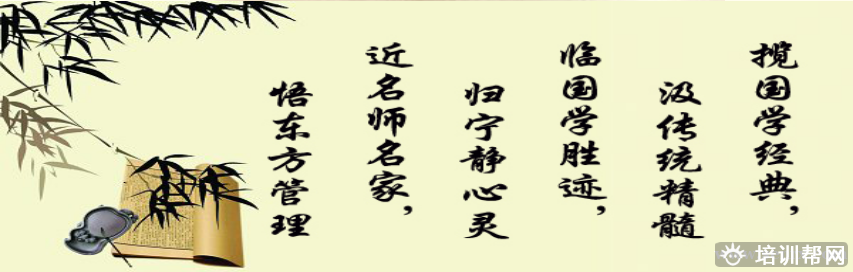 揽国学经典，
汲传统精髓
临国学胜迹，
归宁静心灵
近名师名家，
悟东方管理
培训帮网